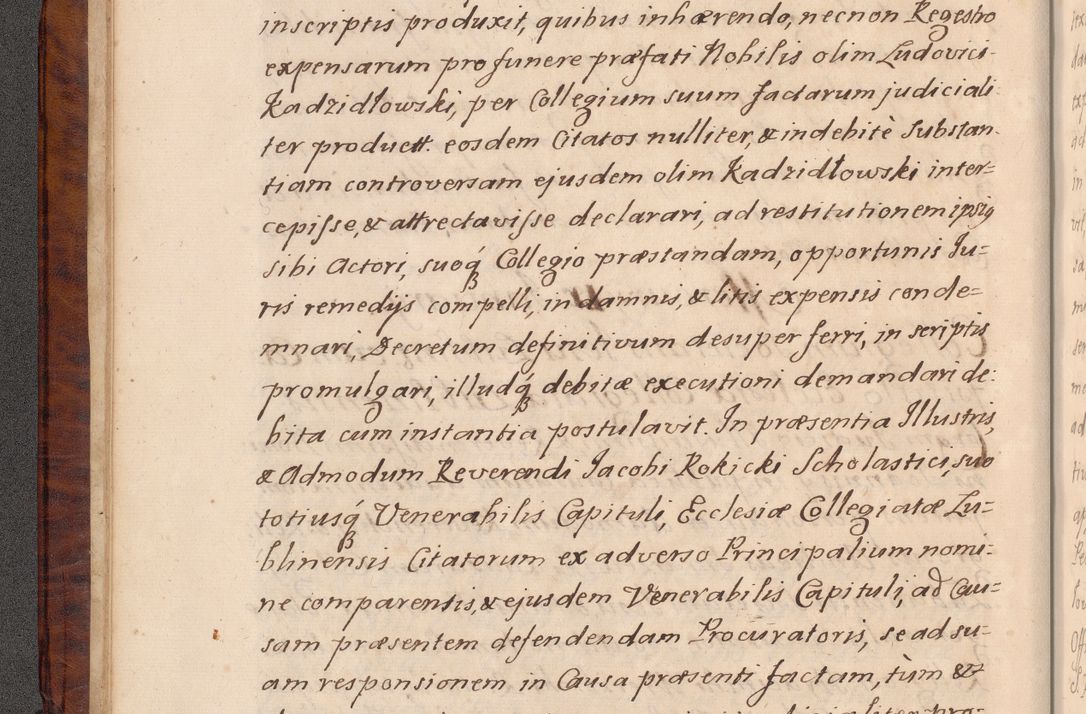 inscriptis produxit, quibus inhærendo, necnon Regestro
expensarum pro funere præfati Nobilis olim Ludovici
Kadzidłowski, per Collegium suum factarum judiciali-
ter product. eosdem Citatos nulliter, & indebitè Substan-
tiam controversam ejusdem olim Kadzidłowski inter=
cepisse, & attrectavisse declarari, ad restitutionem ipsig
sibi Actori, suoq́₃ Collegio præstandam, opportunis Ju=
ris remedijs compelli, in damnis, & litis expensis conde=
mnari, Decretum definitivum desuper ferri, in scriptis
promulgari, illudq́₃ debitæ executioni demandari de:
bita cum instantia postulavit. In præsentia Illustris,
& Admodum Reverendi Jacobi Rokicki Scholastici, suo
totiusq́₃ Venerabilis Capituli, Ecclesiæ Collegiatæ Lu=
blinensis Citatorum ex adverso Principalium nomi=
ne comparentis, & ejusdem Venerabilis Capituli, ad Cau=
sam præsentem defendendam Procuratoris, se ad su=
am responsionem in Causa præsenti factam, tùm &